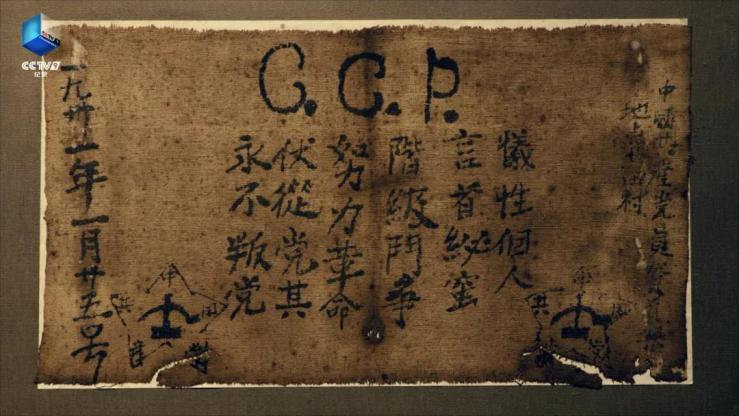 CCTV9
纪录
C.C.P.
中國共產党員
地点 村
犧性個人
言首秘蜜
階級鬥争
努力革命
伏從党其
永不叛党
一九卅一年一月廿五号